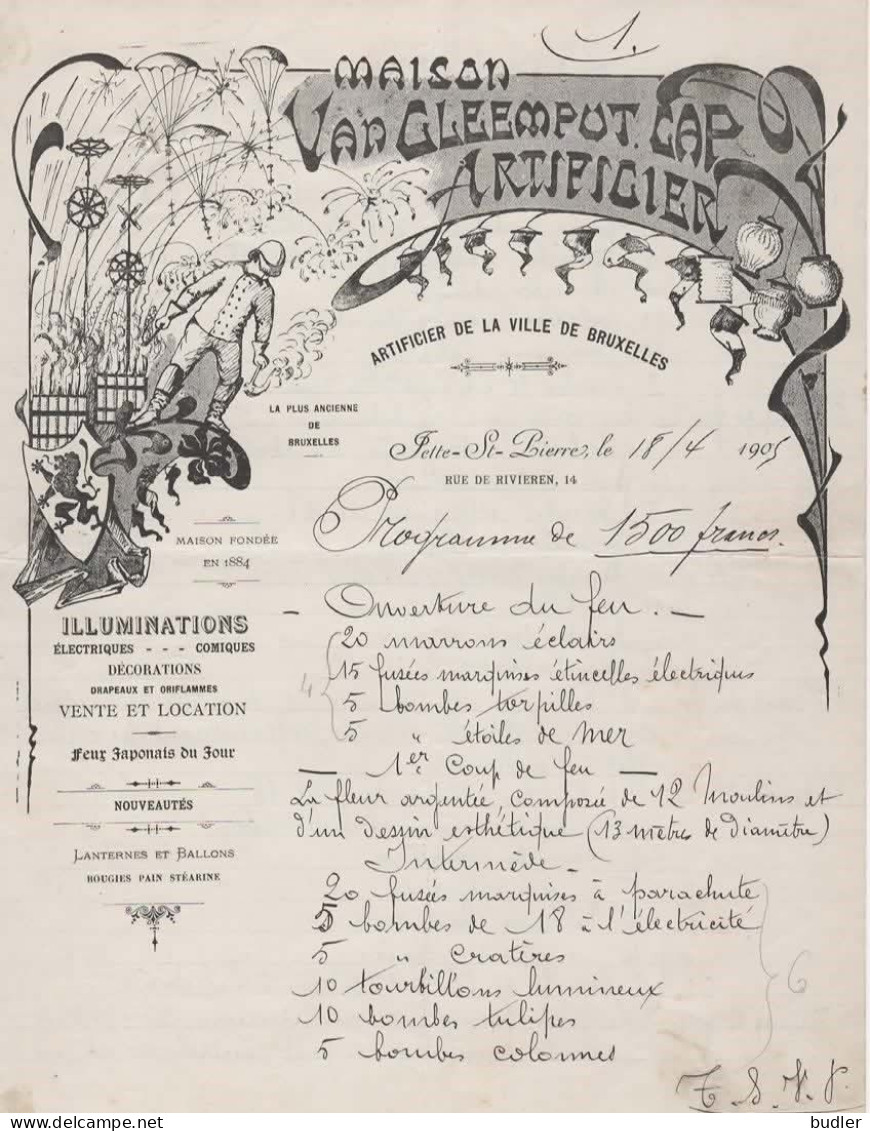 1.
MAISON
VAN CLEEMPUT. CAP
ARTIFICIER
ARTIFICIER DE LA VILLE DE BRUXELLES
LA PLUS ANCIENNE
DE
BRUXELLES
Jette-St-Pierre, le 18/4 1905
RUE DE RIVIEREN, 14
MAISON FONDÉE
EN 1884
ILLUMINATIONS
ÉLECTRIQUES - - - COMIQUES
DÉCORATIONS
DRAPEAUX ET ORIFLAMMES
VENTE ET LOCATION
Feux Japonais du Jour
NOUVEAUTÉS
LANTERNES ET BALLONS
BOUGIES PAIN STÉARINE
Programme de 1500 francs.
- Ouverture du feu. -
20 marrons éclairs
15 fusées marquises étincelles électriques
4
5 bombes torpilles
5 " étoiles de mer
- 1er Coup de feu -
La fleur argentée, composée de 12 Moulins et
d'un Dessin esthétique (13 mètres de Diamètre)
Intermède -
20 fusées marquises à parachute
5 bombes de 18 à l'électricité
5 " cratères
10 tourbillons lumineux
6
10 bombes tulipes
5 bombes colonnes
T. S. V. P.
budler